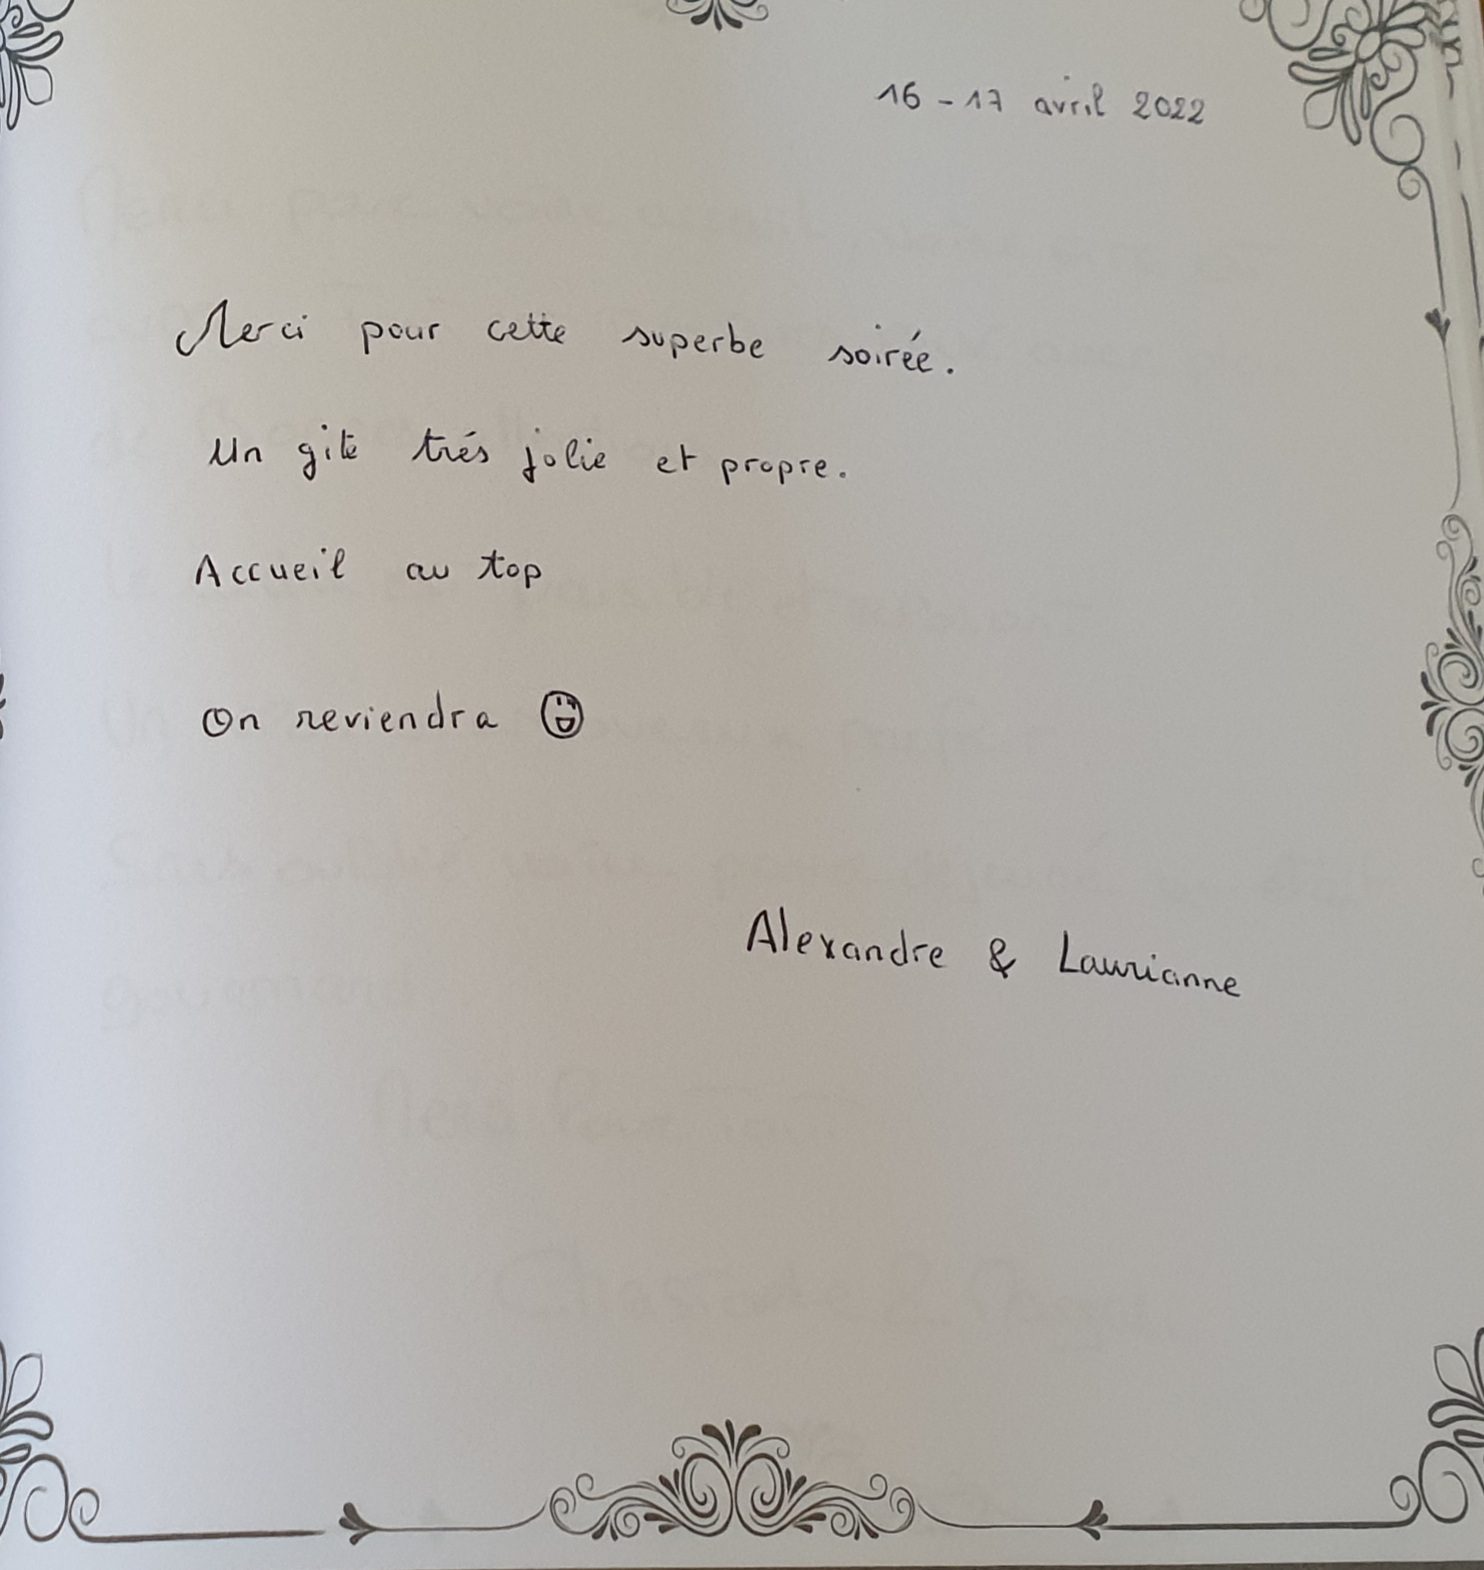 16 - 17 avril 2022
Merci pour cette superbe soirée.
Un gite trés jolie et propre.
Accueil au top
On reviendra
Alexandre & Laurianne